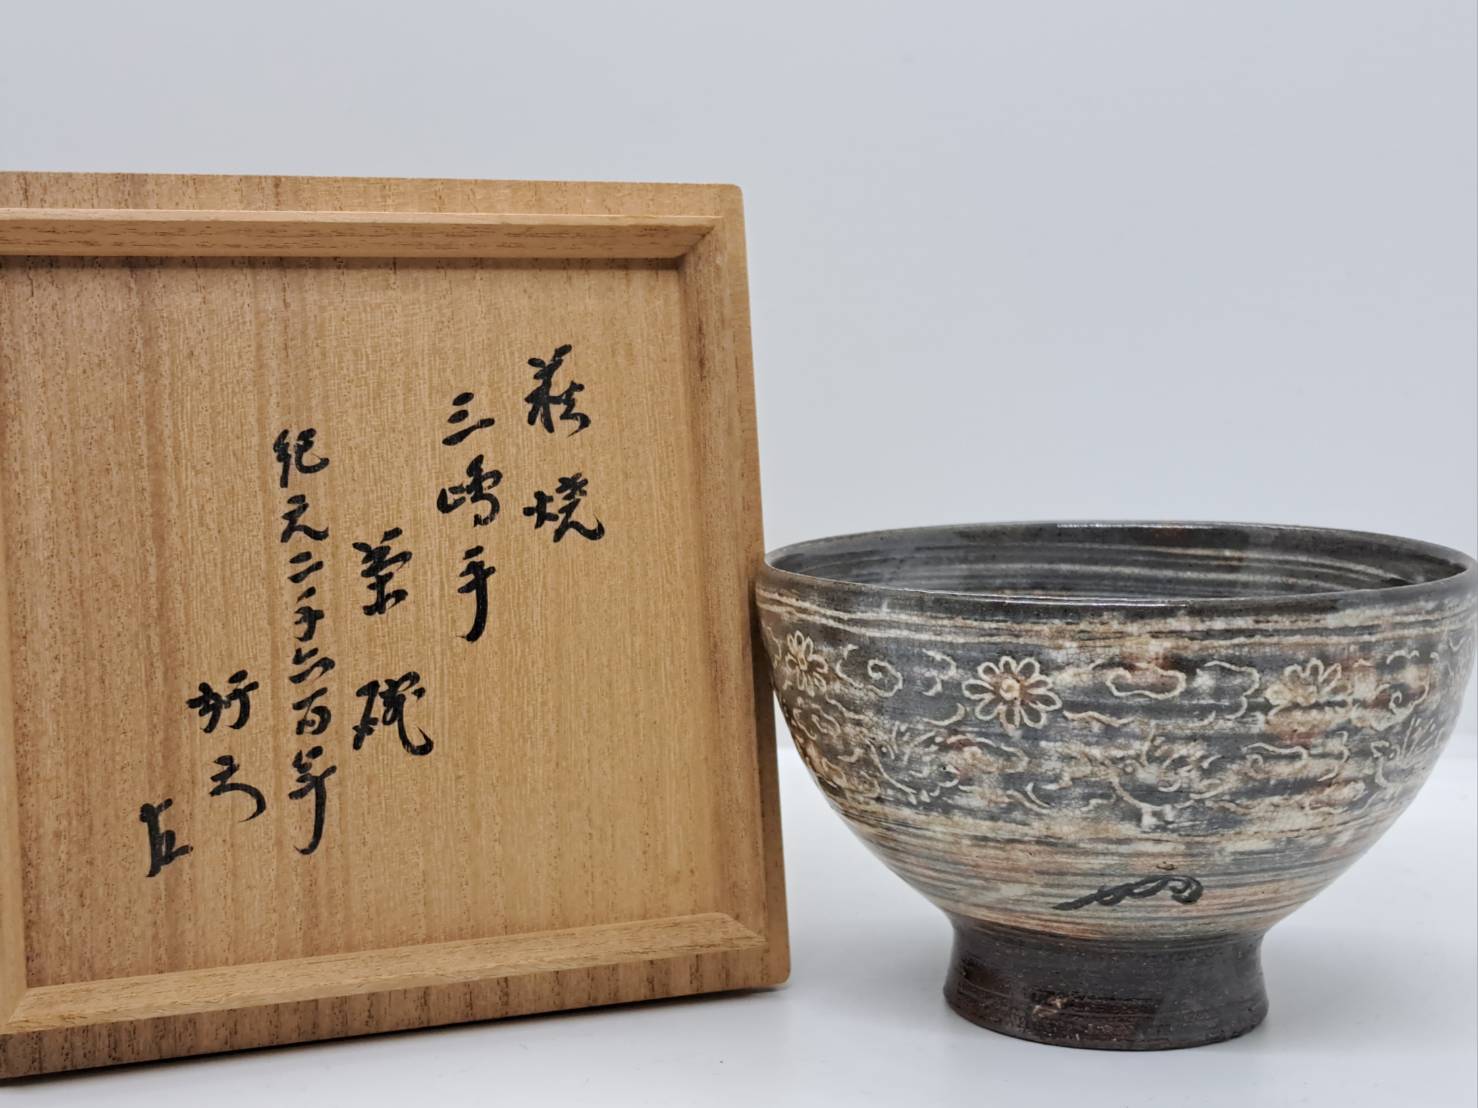 萩焼
三嶋手
茶碗
紀元二千六百年